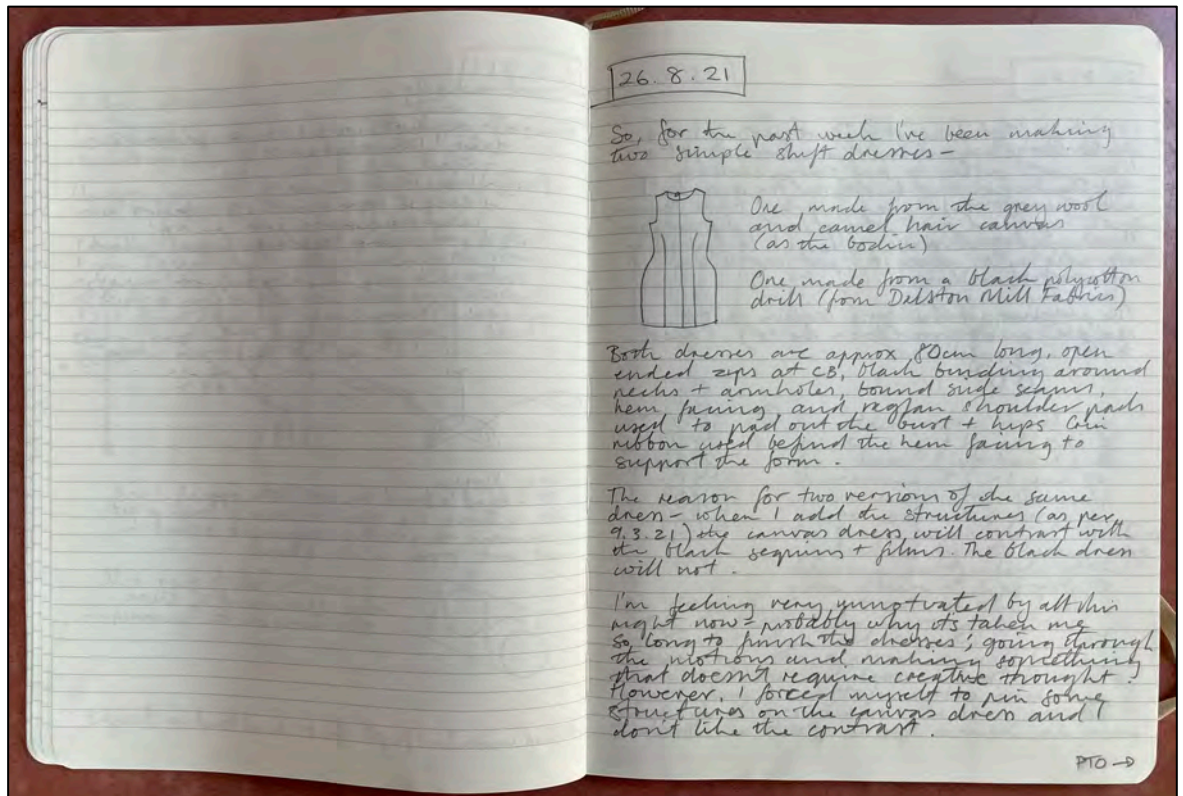 26.8.21
So, for the past week I've been making
two simple shift dresses-
One made from the grey wool
and camel hair canvas
(as the bodice)
One made from a black polycotton
drill (from Dalston Mill Fabrics)
Both dresses are approx 80cm long, open
ended zips at CB, black binding around
necks + armholes, bound side seams,
hem facing, and raglan shoulder pads
used to pad out the bust + hips.
ribbon used behind the hem facing to
support the form.
The reason for two versions of the same
dress- when I add the structures (as per
9.3.21) the canvas dress will contrast with
the black sequins + films. The black dress
will not.
I'm feeling very unmotivated by all this
right now- probably why it's taken me
so long to finish the dresses; going through
the motions and making something
that doesn't require creative thought.
However, I forced myself to pin some
structures on the canvas dress and I
don't like the contrast.
PTO →